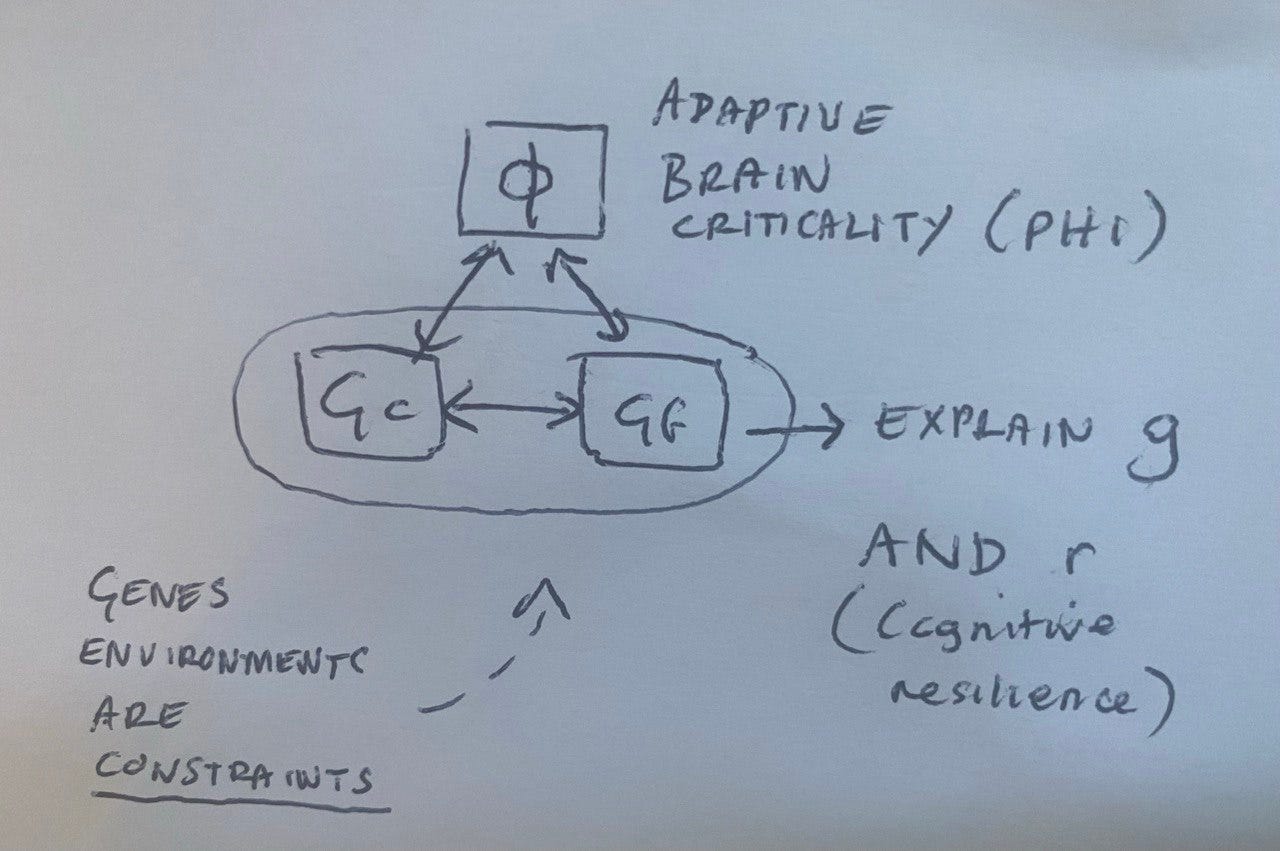 ADAPTIVE
BRAIN
CRITICALITY (PHI)
ϕ
Gc
Gf
EXPLAIN g
AND r
(Cognitive
resilience)
GENES
ENVIRONMENTS
ARE
CONSTRAINTS